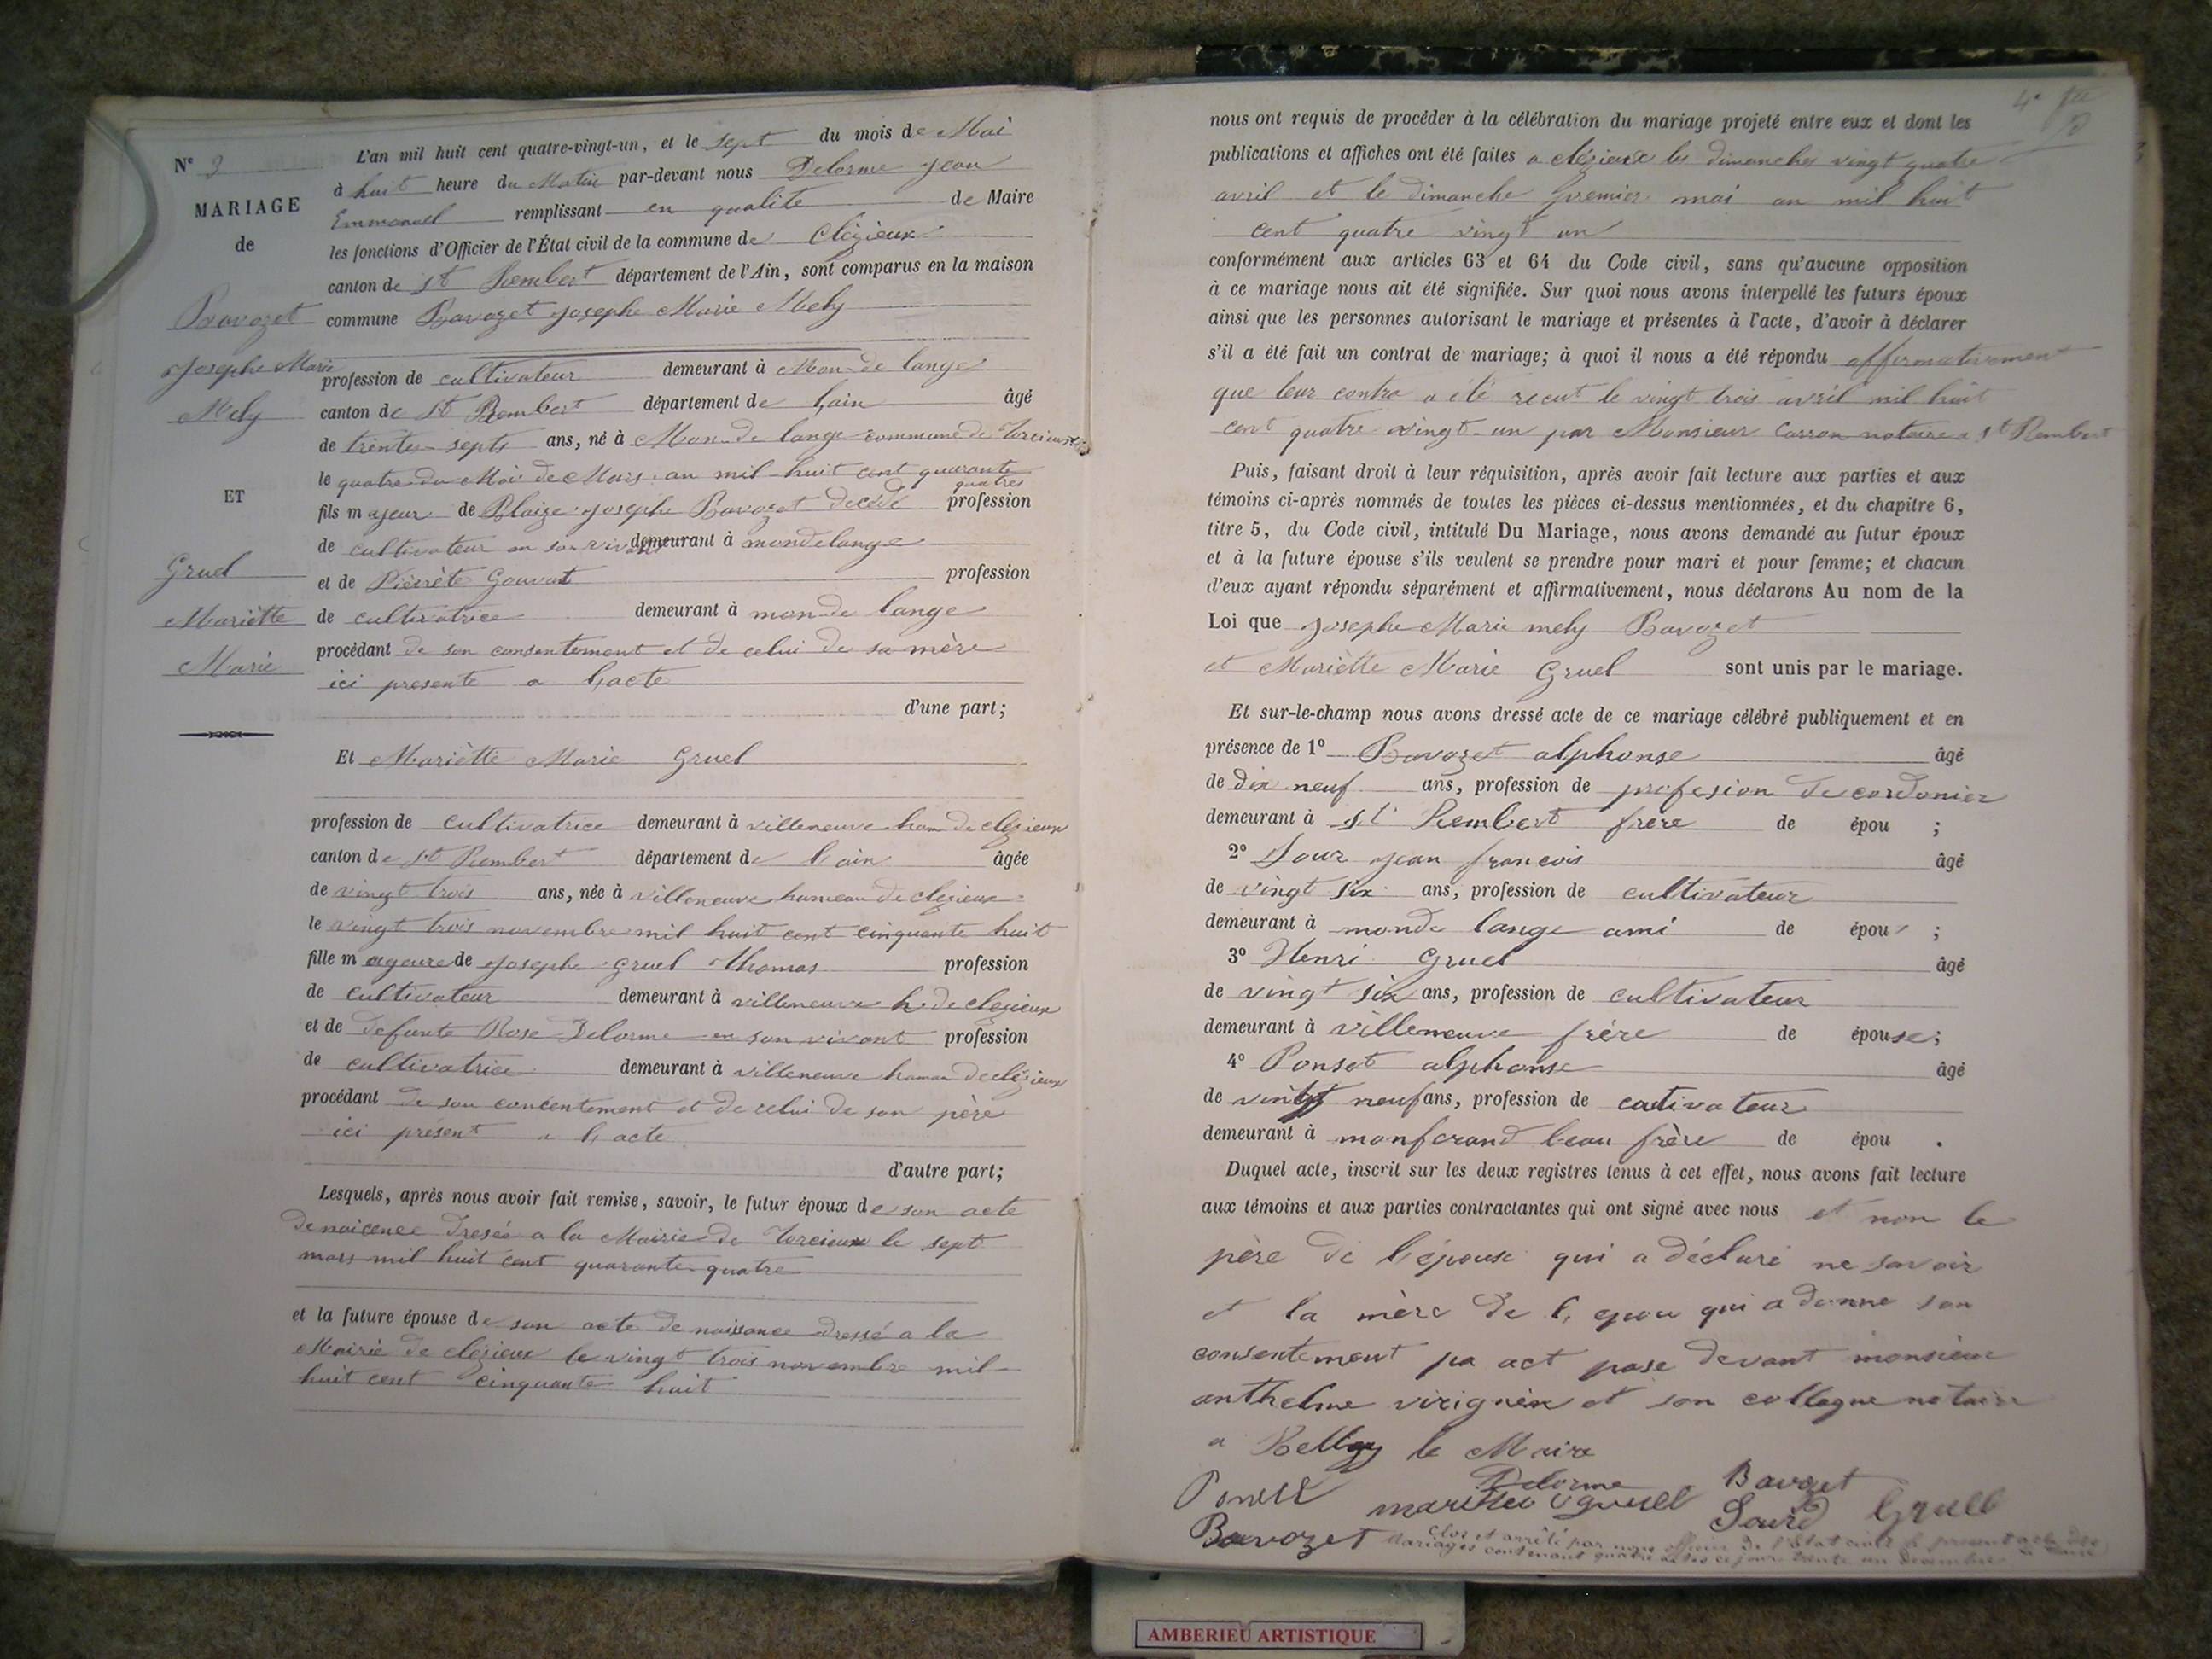 N° 3
MARIAGE
de
Bavozet
Josephe Marie
Mely
ET
Gruel
Mariette
Marie
L'an mil huit cent quatre-vingt-un, et le sept du mois de Mai
à huit heure du Matin par-devant nous Delorme Jean
Emmanuel remplissant en qualité de Maire
les fonctions d'Officier de l'État civil de la commune de Clézieux
canton de St Rembert département de l'Ain, sont comparus en la maison
commune Bavozet Josephe Marie Mely
profession de cultivateur demeurant à Mon de lange
canton de St Rembert département de Lain âgé
de trente septs ans, né à Mon de lange commune de Torcieux
le quatre du Moi de Mars an mil huit cent quarante
quatres
fils majeur de Blaize Josephe Bavozet décédé profession
de cultivateur en son vivant demeurant à mondelange
et de Pierrète Gouvat profession
de cultivatrice demeurant à mon de lange
procédant de son consentement et de celui de sa mère
ici presente a L'acte
d'une part;
Et Mariètte Marie Gruel
profession de cultivatrice demeurant à villeneuve ham de clézieux
canton de St Rembert département de L'ain âgée
de vingt trois ans, née à villeneuve hameau de clezieux
le vingt trois novembre mil huit cent cinquante huit
fille mageure de Josephe Gruel Thomas profession
de cultivateur demeurant à villeneuve h. de clezieux
et de defunte Rose Delorme en son vivant profession
de cultivatrice demeurant à villeneuve hamau de clézieux
procédant de son concentement et de celui de son père
ici present a L'acte
d'autre part;
Lesquels, après nous avoir fait remise, savoir, le futur époux de son acte
de naicence dresée a la Mairie de Torcieux le sept
mars mil huit cent quarante quatre
et la future épouse de son acte de naissance dressé a la
Mairie de clézieux le vingt trois novembre mil
huit cent cinquante huit
nous ont requis de procéder à la célébration du mariage projeté entre eux et dont les
publications et affiches ont été faites a clézieux les dimanches vingt quatre
avril et le dimanche premier mai an mil huit
cent quatre vingt un
conformément aux articles 63 et 64 du Code civil, sans qu'aucune opposition
à ce mariage nous ait été signifiée. Sur quoi nous avons interpellé les futurs époux
ainsi que les personnes autorisant le mariage et présentes à l'acte, d'avoir à déclarer
s'il a été fait un contrat de mariage; à quoi il nous a été répondu affirmativement
que leur contra a été recut le vingt trois avril mil huit
cent quatre vingt un par Monsieur Carron notaire a St Rembert
Puis, faisant droit à leur réquisition, après avoir fait lecture aux parties et aux
témoins ci-après nommés de toutes les pièces ci-dessus mentionnées, et du chapitre 6,
titre 5, du Code civil, intitulé Du Mariage, nous avons demandé au futur époux
et à la future épouse s'ils veulent se prendre pour mari et pour femme; et chacun
d'eux ayant répondu séparément et affirmativement, nous déclarons Au nom de la
Loi que Josephe Marie mely Bavozet
et Mariètte Marie Gruel sont unis par le mariage.
Et sur-le-champ nous avons dressé acte de ce mariage célébré publiquement et en
présence de 1° Bavozet alphonse âgé
de dix neuf ans, profession de profesion de cordonier
demeurant à St Rembert frère de épou ;
2° Sour Jean francois âgé
de vingt six ans, profession de cultivateur
demeurant à monde lange ami de épou ;
3° Henri Gruel âgé
de vingt six ans, profession de cultivateur
demeurant à villeneuve frère de épouse;
4° Ponset alphonse âgé
de vingt neuf ans, profession de cultivateur
demeurant à monferand beau frère de épou .
Duquel acte, inscrit sur les deux registres tenus à cet effet, nous avons fait lecture
aux témoins et aux parties contractantes qui ont signé avec nous et non le
père de L'épouse qui a déclaré ne savoir
et la mère de L'epou qui a donné son
consentement pa act pase devant monsieur
anthelme virignin et son collegue notaire
a Belley le Maire
Delorme Bavozet
Ponset mariette gruel Sourd Gruel
Bavozet Clos et arrêté par nous officier de l'état civil le present acte des
Mariages contenant quatre actes ce jour trente un decembre
AMBERIEU ARTISTIQUE